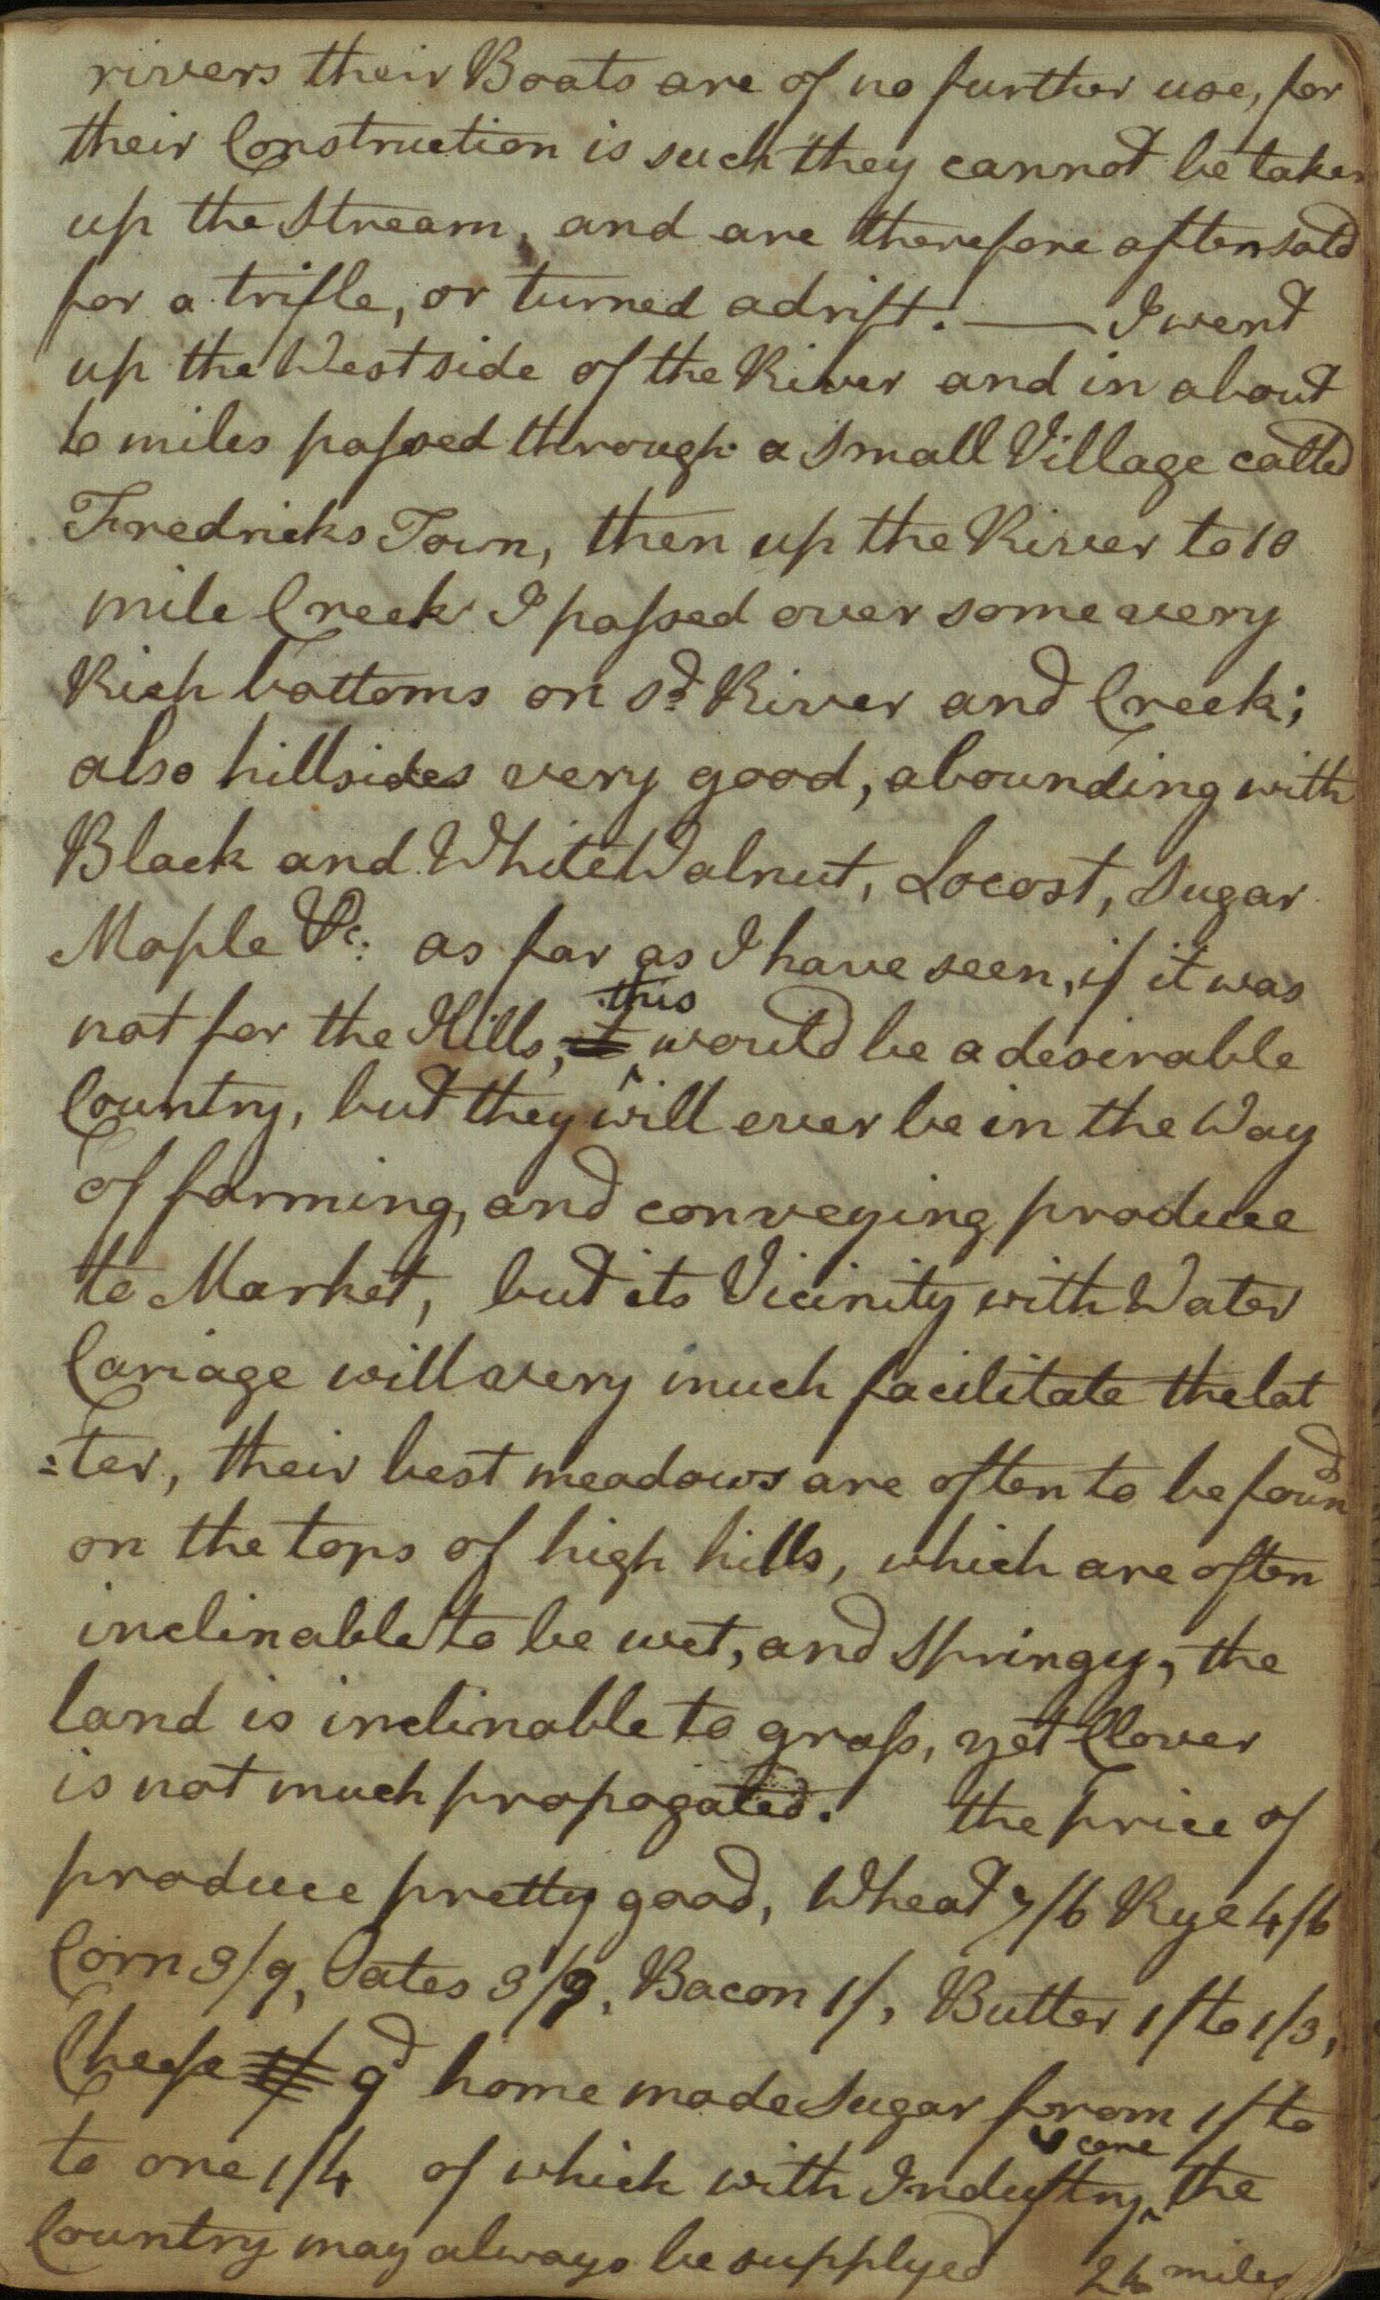 rivers their Boats are of no further use, for
their Construction is such they cannot be taken
up the Stream, and are therefore often sold
for a trifle, or turned adrift. — I went
up the West side of the River and in about
6 miles passed through a small Village called
Fredricks Town, then up the River to 10
mile Creek I passed over some very
Rich bottoms on sd. River and Creek;
also hillsides very good, abounding with
Black and White Walnut, Locost, Sugar
Maple &c. as far as I have seen, if it was
not for the Hills, it this would be a desirable
Country, but they will ever be in the Way
of farming, and conveying produce
to Market, but its Vicinity with Water
Cariage will very much facilitate the lat
:ter, their best meadows are often to be found
on the tops of high hills, which are often
inclinable to be wet, and springy, the
land is inclinable to grass, yet Clover
is not much propogated. the price of
produce pretty good, Wheat 7/6 Rye 4/6
Corn 3/9, Oates 3/9, Bacon 1/, Butter 1/ to 1/3,
Cheese 1/ 9d home made Sugar from 1/ to
to one 1/4 of which with Industry & care the
Country may always be supplyed miles